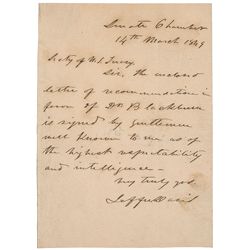 Senate Chamber
14th March 1849
Secty of U.S. Treasy
Sir, the enclosed
letter of recommendation in
favor of Dr. Blackburn
is signed by Gentlemen
well known to me as of
the highest respectability
and intelligence -
very truly yrs,
Jeffer: Davis